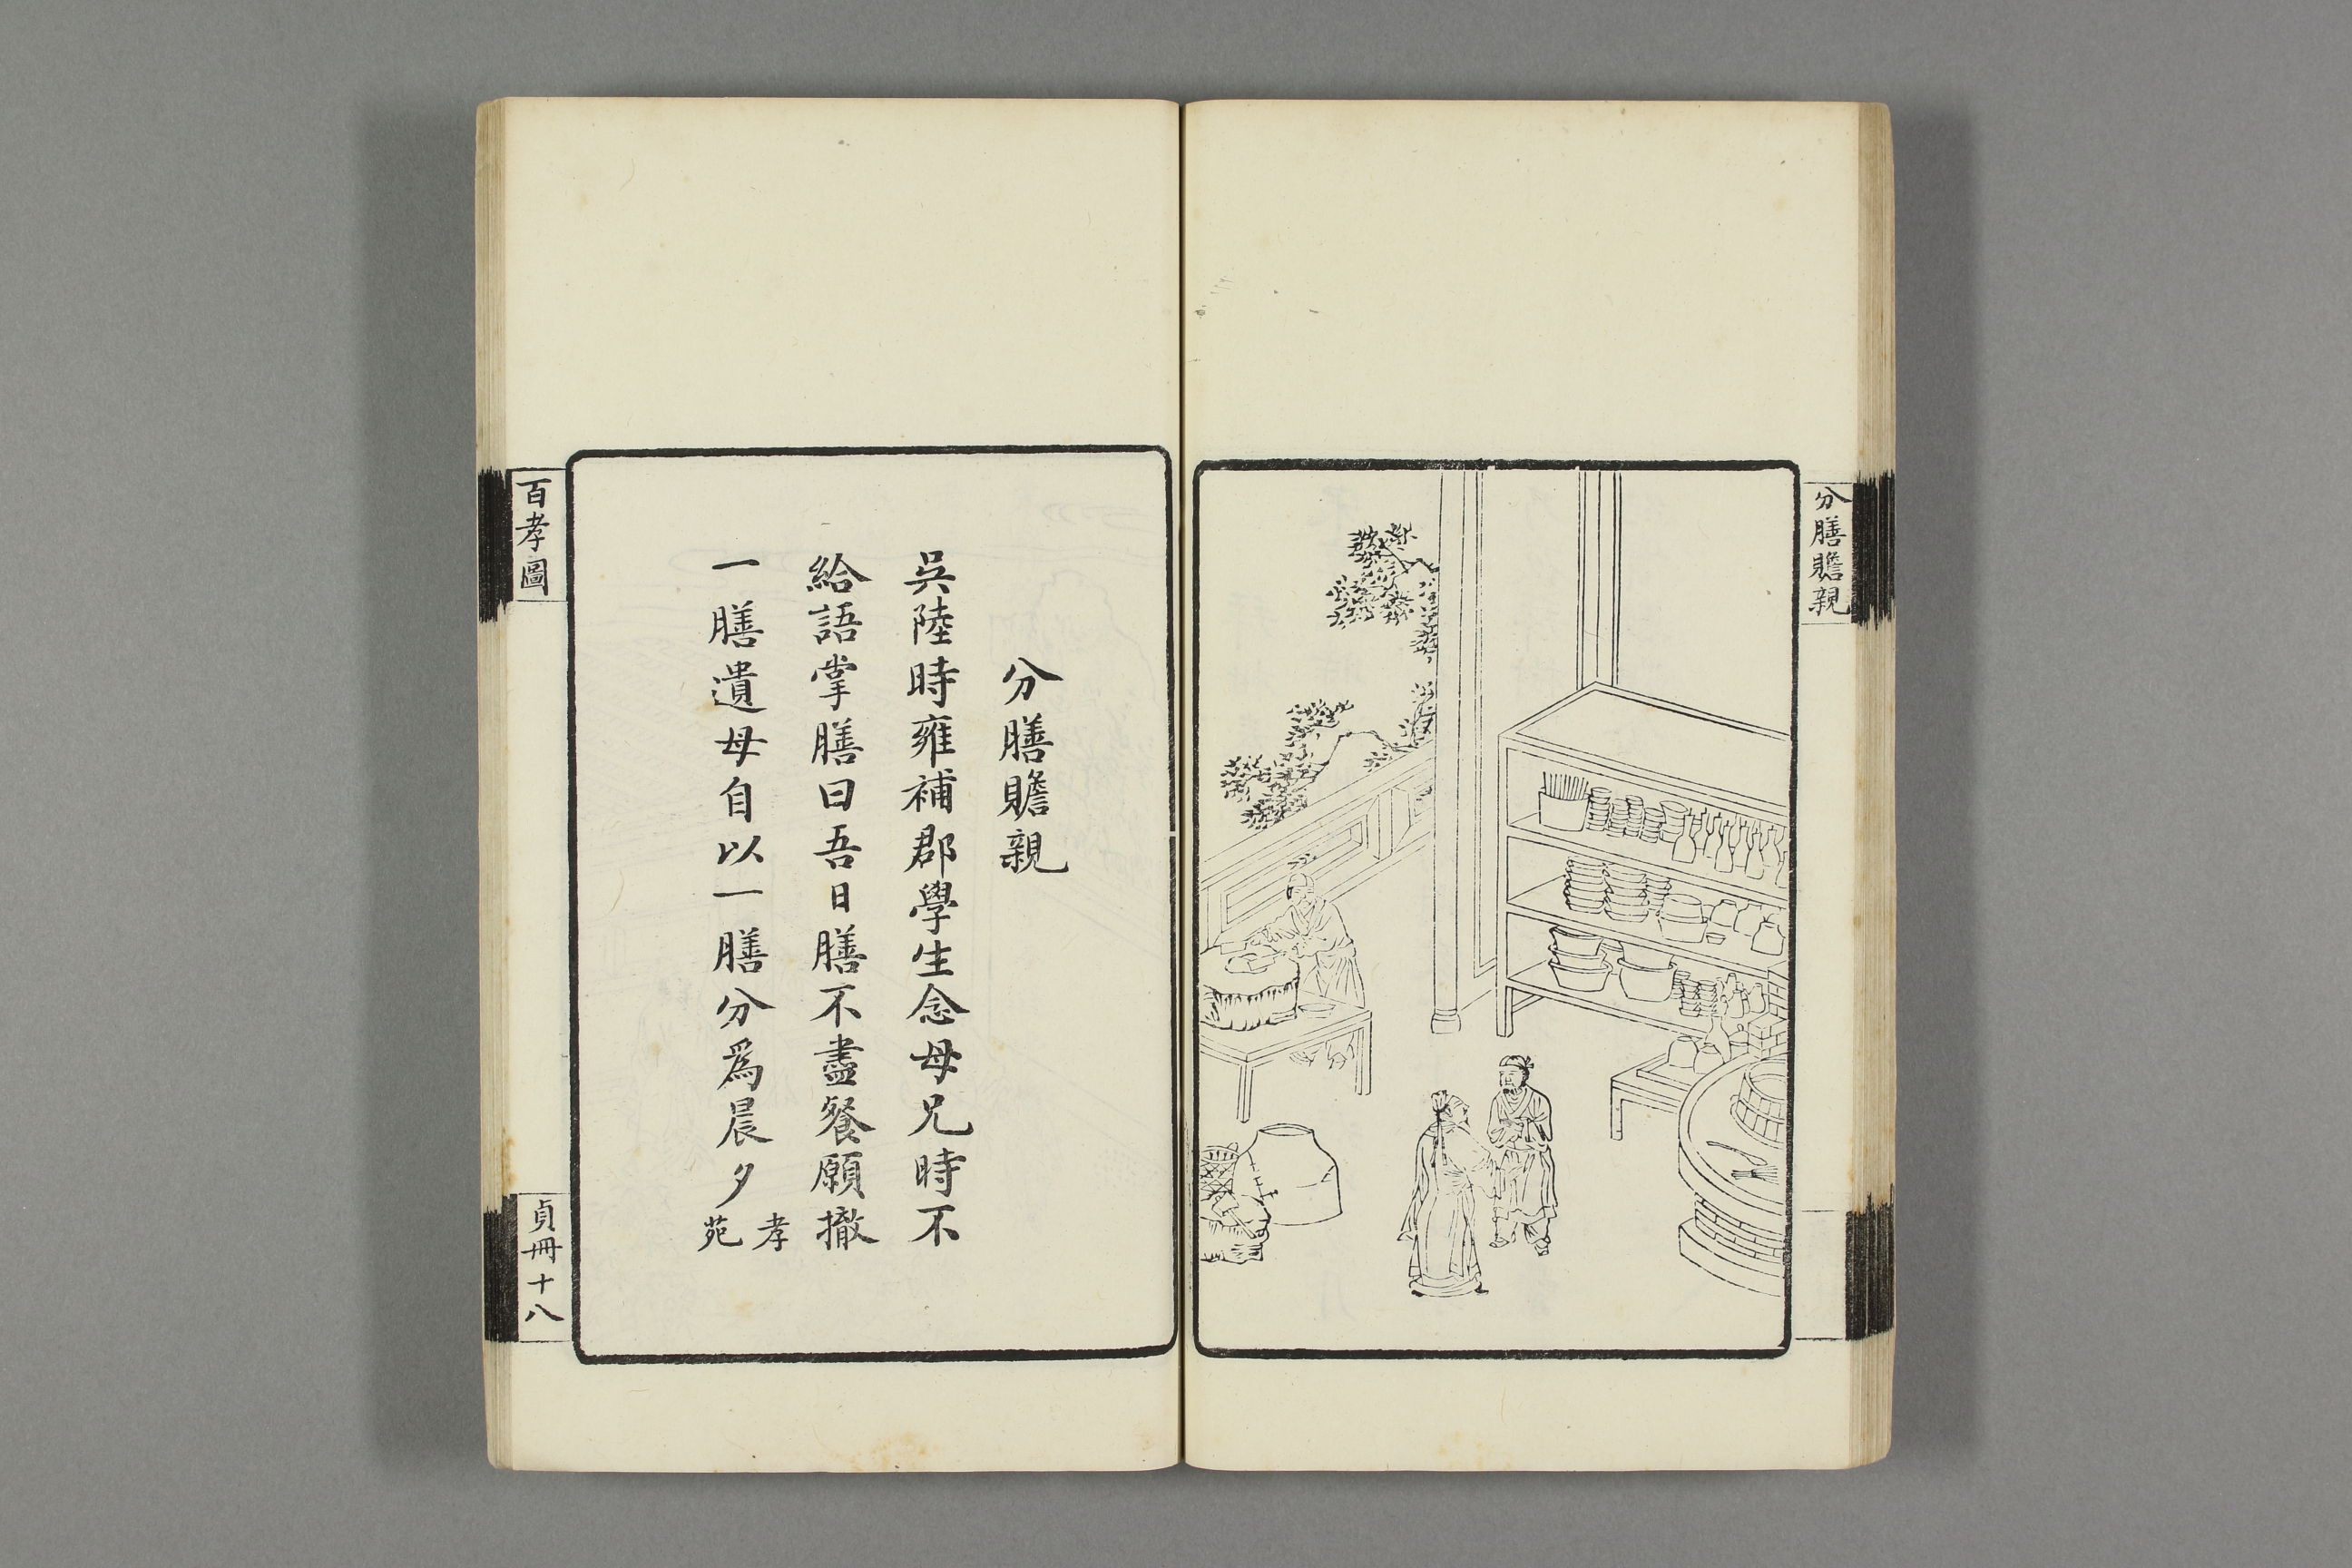 分膳贍親
分膳贍親
吳陸時雍補郡學生念母兄時不
給語掌膳曰吾日膳不盡餐願撤
一膳遺母自以一膳分爲晨夕
孝
苑
百孝圖
貞冊十八